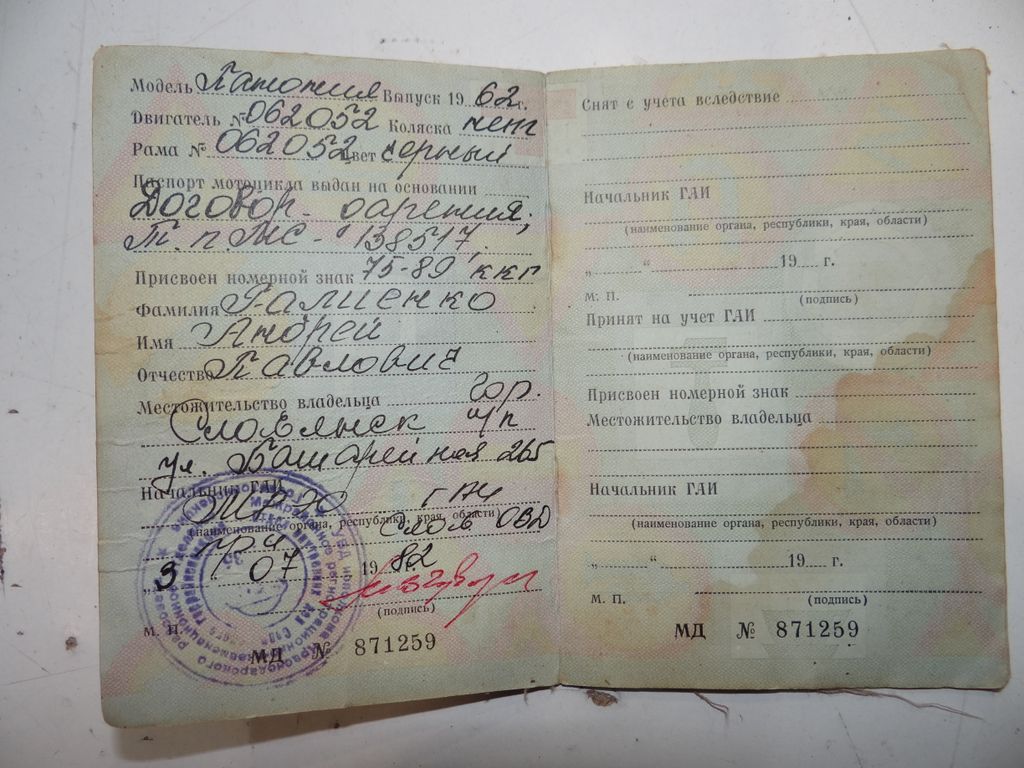 Модель Панония Выпуск 19 62 г.
Двигатель № 062052 Коляска
Рама № 062052 Цвет черный
Паспорт мотоцикла выдан на основании
Договор- дарения,
Т.п МС- 138517
Присвоен номерной знак 75-89 ккг
Фамилия Галиенко
Имя Андрей
Отчество Павлович
Местожительство владельца гор.
Славянск н/п
ул. Батарейная 265
Начальник ГАИ
МРЭО ГАИ
(наименование органа, республики, края, области)
при Слав ОВД
„ 3 “ 07 19 82
(подпись)
М. П.
МД № 871259
Снят с учета вследствие
Начальник ГАИ
(наименование органа, республики, края, области)
„ “ 19 г.
М. П. (подпись)
Принят на учет ГАИ
(наименование органа, республики, края, области)
Присвоен номерной знак
Местожительство владельца
Начальник ГАИ
(наименование органа, республики, края, области)
„ “ 19 г.
М. П. (подпись)
МД № 871259